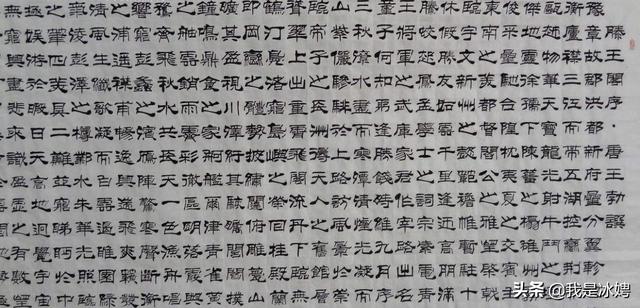 滕王閣序·唐王勃譔
豫章故郡洪都新府星分翼軫地
衡廬襟三江而帶五湖控蠻荊而
甌越物華天寶龍光射牛斗之墟
傑地靈徐孺下陳蕃之榻雄州霧
俊采星馳臺隍枕夷夏之交賓主
東南之美都督閻公之雅望棨戟
臨宇文新州之懿範襜帷暫駐十
休假勝友如雲千里逢迎高朋滿
騰蛟起鳳孟學士之詞宗紫電青
王將軍之武庫家君作宰路出名
童子何知躬逢勝餞時維九月序
三秋潦水盡而寒潭清煙光凝而
山紫儼驂騑於上路訪風景於崇
臨帝子之長洲得天人之舊館層
聳翠上出重霄飛閣流丹下臨無
鶴汀鳧渚窮島嶼之縈迴桂殿蘭
即岡巒之體勢披繡闥俯雕甍山
曠其盈視川澤紆其駭矚閭閻撲
鐘鳴鼎食之家舸艦迷津青雀黃
之舳雲銷雨霽彩徹區明落霞與
鶩齊飛秋水共長天一色漁舟唱
響窮彭蠡之濱雁陣驚寒聲斷衡
之浦遙襟甫暢逸興遄飛爽籟發
清風生纖歌凝而白雲遏睢園綠
氣凌彭澤之樽鄴水朱華光照臨
之筆四美具二難並窮睇眄於中
極娛遊於暇日天高地迥覺宇宙
無窮興盡悲來識盈虛之有數
头条 @我是冰娉